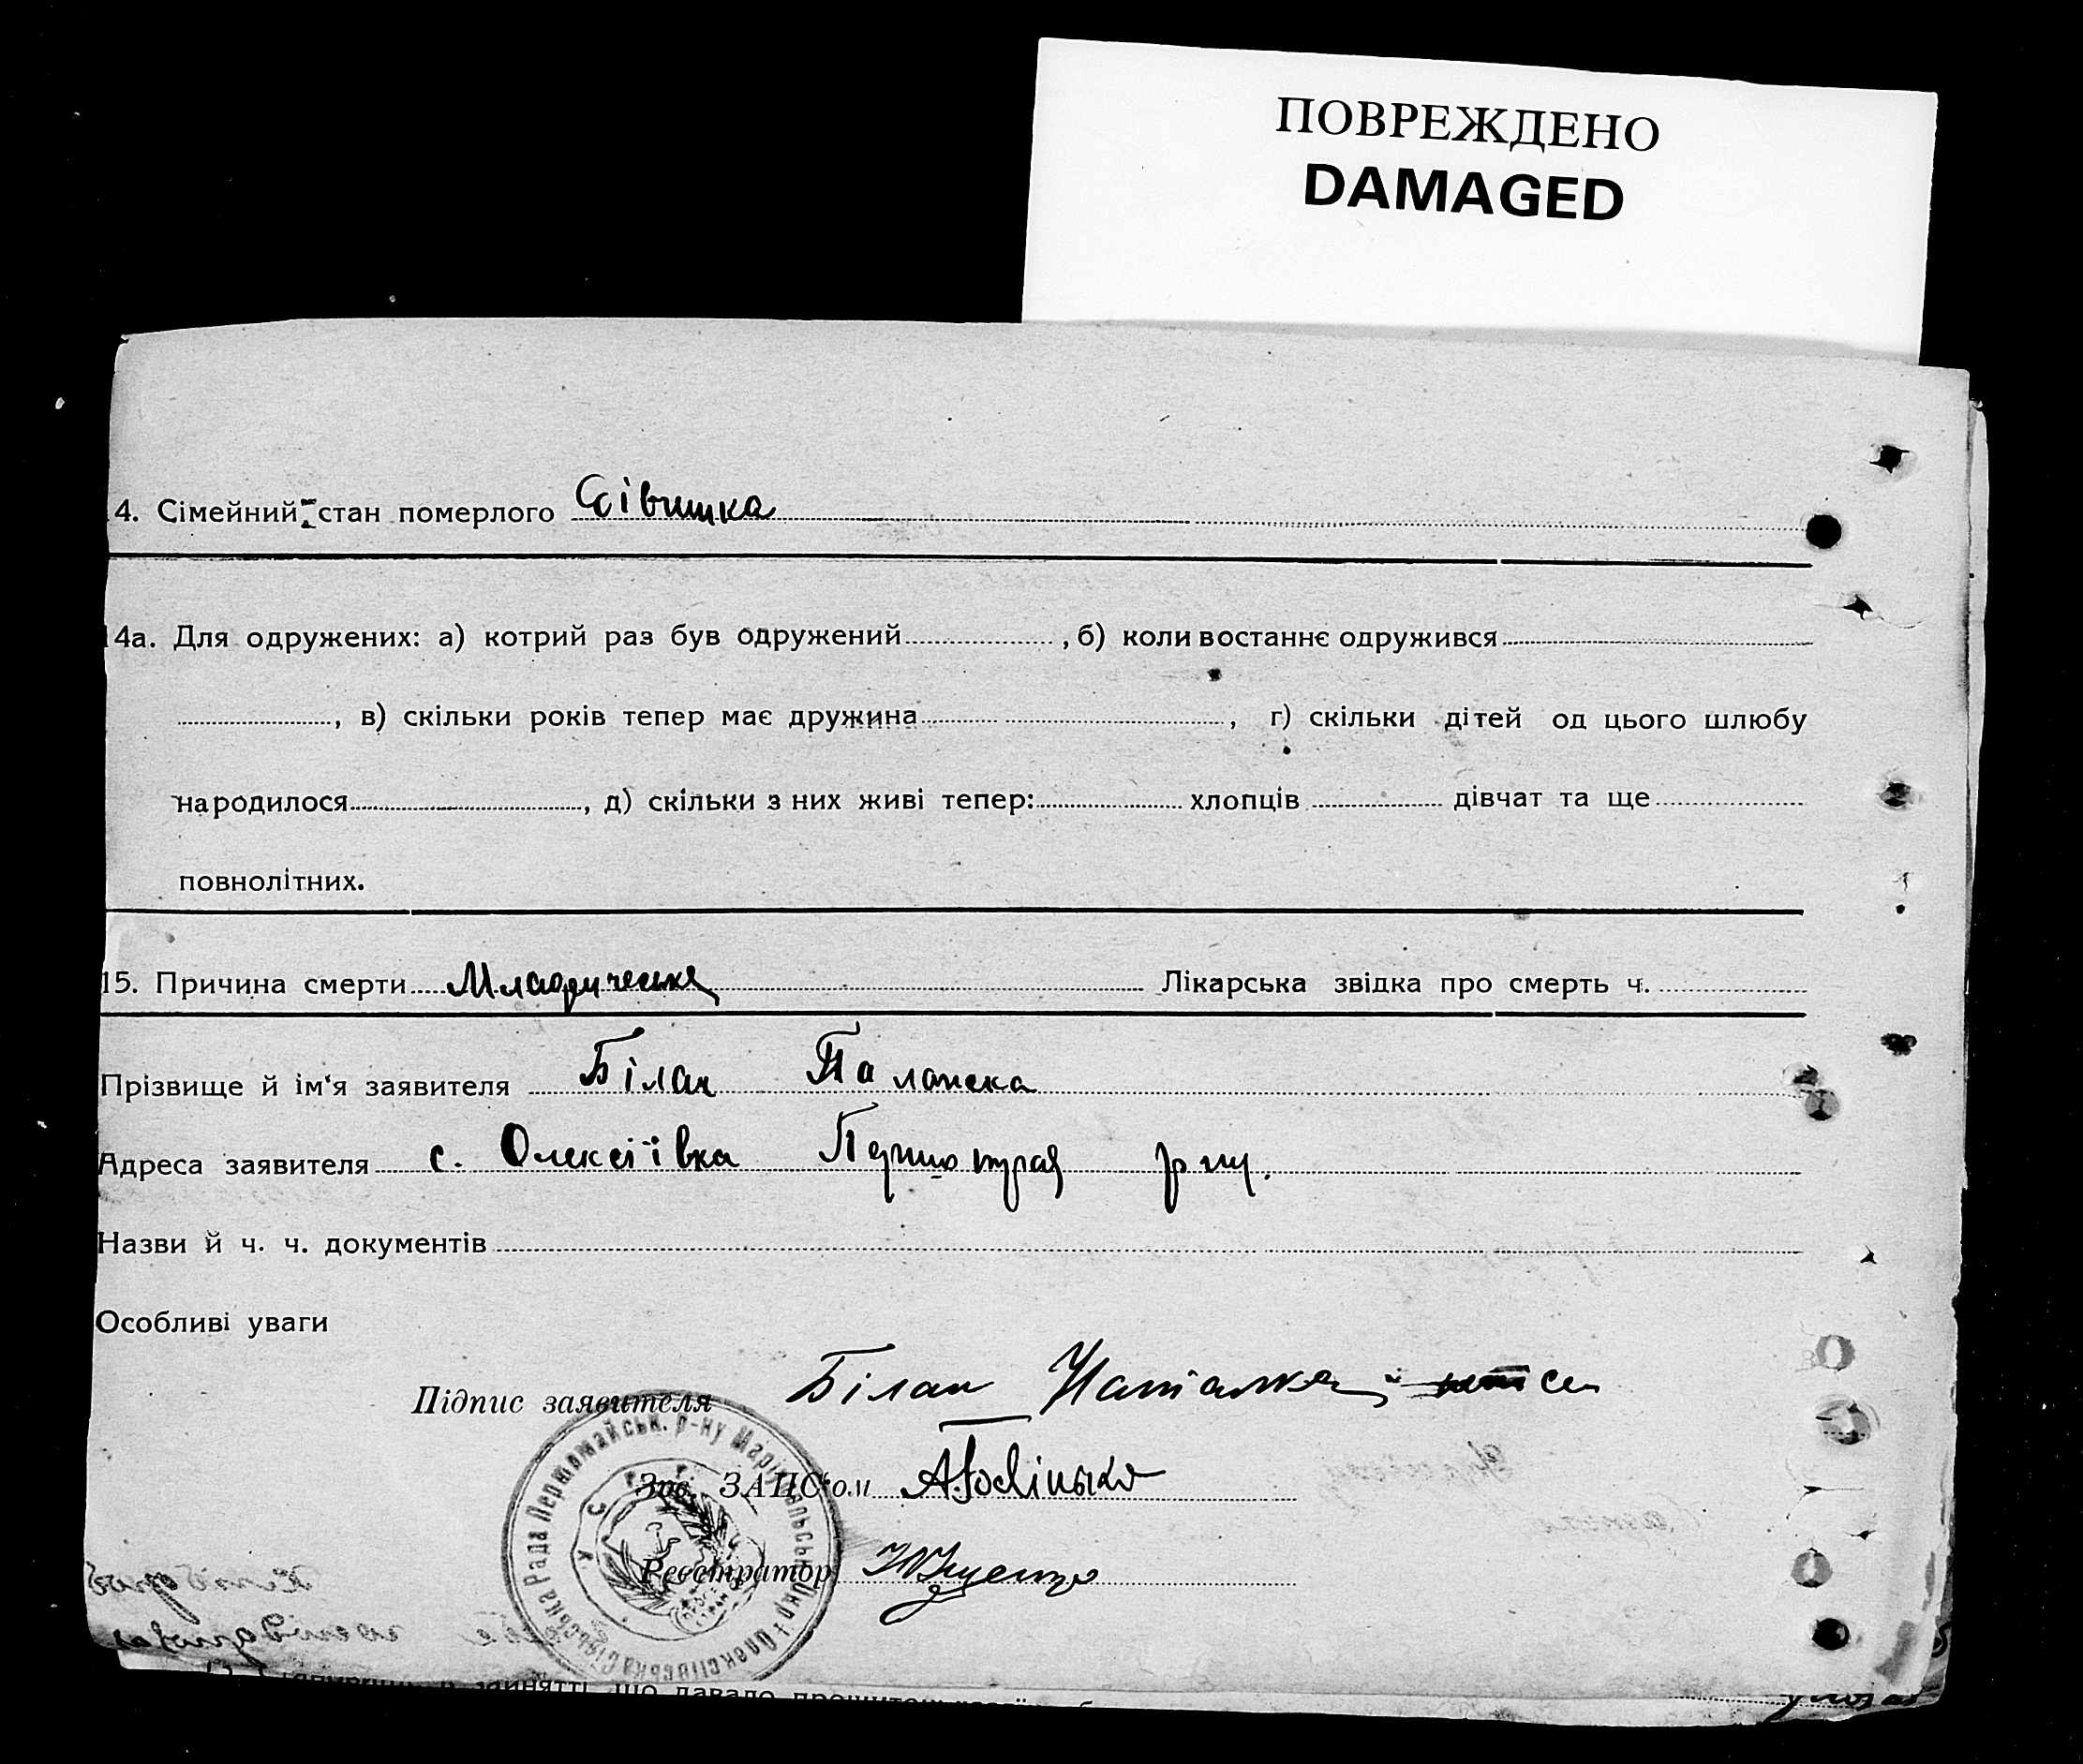 ПОВРЕЖДЕНО
DAMAGED
4. Сімейний стан померлого Дівчинка
14а. Для одружених: а) котрий раз був одружений , б) коли востаннє одружився
, в) скільки років тепер має дружина , г) скільки дітей од цього шлюбу
народилося , д) скільки з них живі тепер: хлопців дівчат та ще
повнолітних.
15. Причина смерти Младическа Лікарська звідка про смерть ч.
Прізвище й ім'я заявителя Білан
Адреса заявителя с. Олексіївка р ну.
Назви й ч. ч. документів
Особливі уваги
Підпис заявителя Білан Наталка
Зав. ЗАПС'ом
Реєстратор
Олексіївська Сільська Рада Першомайськ. р-ну Маріупільської Окр.
У. С. Р. Р.